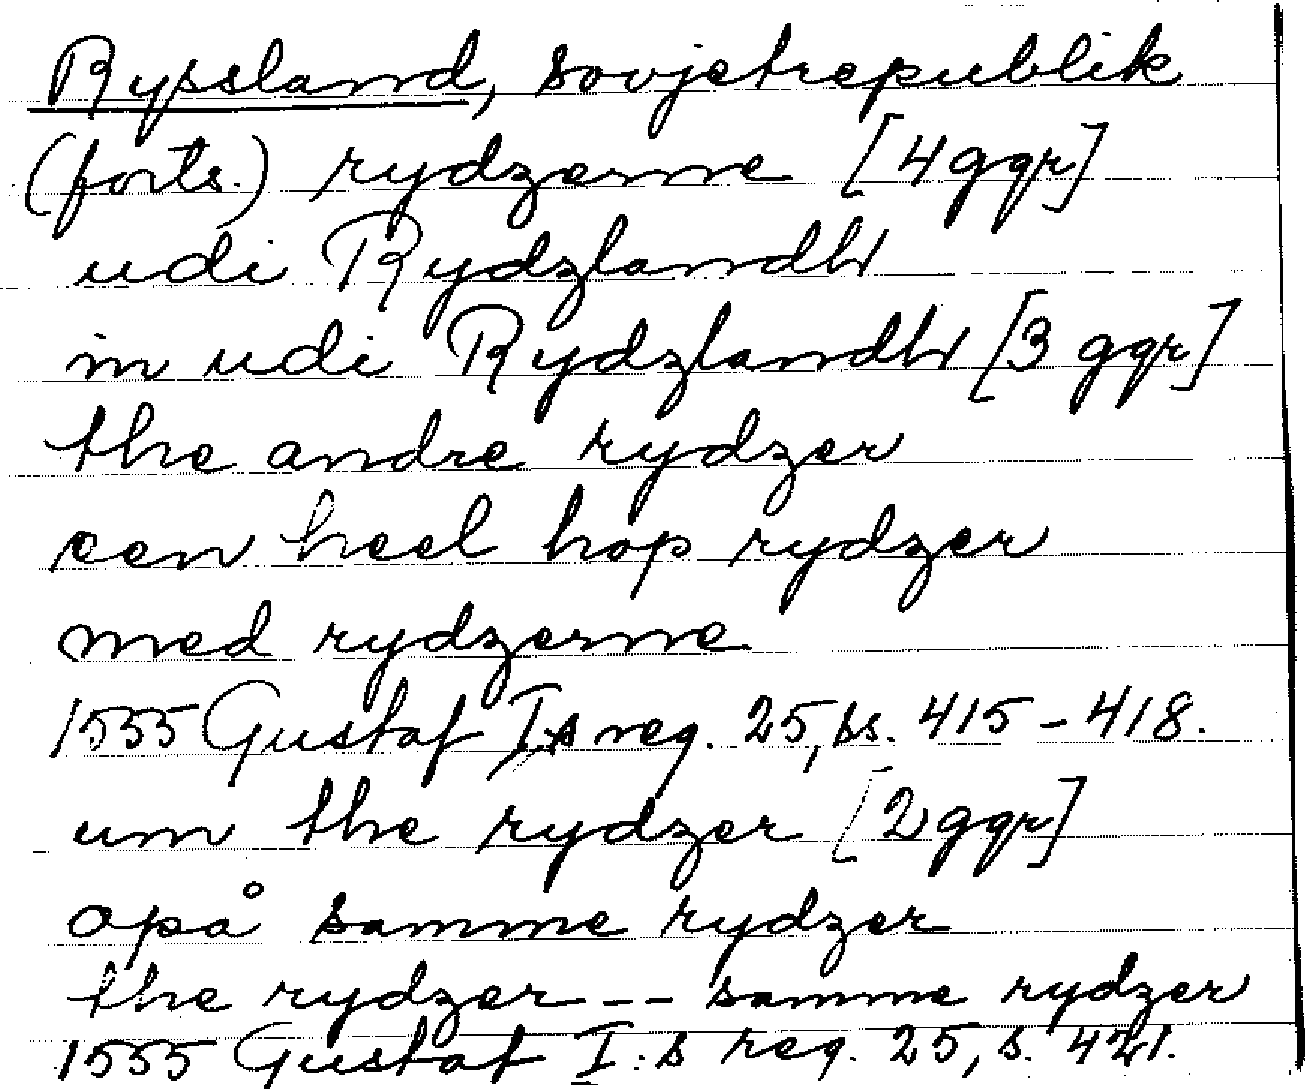 Ryssland, sovjetrepublik
(forts.) rydzerne [4 ggr]
udi Rydzlandh
in udi Rydzlandh [3 ggr]
the andre rydzer
een heel hop rydzer
med rydzerne
1555 Gustaf I:s reg. 25, ss. 415-418.
um the rydzer [2 ggr]
opå samme rydzer
the rydzer -- samme rydzer
1555 Gustaf I:s reg. 25, s. 421.